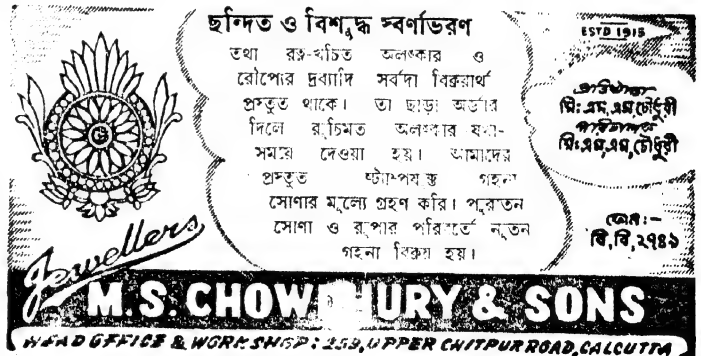 ছন্দিত ও বিশুদ্ধ স্বর্ণাভরণ
তথা রত্ন-খচিত অলংকার ও
রৌপ্যের দ্রব্যাদি সর্বদা বিক্রয়ার্থ
প্রস্তুত থাকে। তা ছাড়া অর্ডার
দিলে রুচিমত অলংকার যথা-
সময়ে দেওয়া হয়। আমাদের
প্রস্তুত ষ্ট্যাম্পযুক্ত গহনা
সোণার মূল্যে গ্রহণ করি। পুরাতন
সোণা ও রূপার পরিবর্তে নূতন
গহনা বিক্রয় হয়।
ESTD 1915
মিঃ এম, এম, চৌধুরী
মিঃ এম, এম, চৌধুরী
ফোন:-
বি, বি, ২৭৪৯
Jewellers
M. S. CHOWDHURY & SONS
HEAD OFFICE & WORKSHOP: 259, UPPER CHITPUR ROAD, CALCUTTA